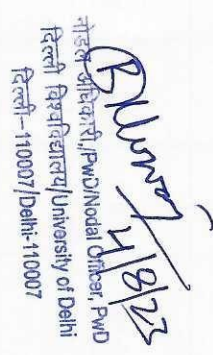 4/8/23
नोडल अधिकारी,PwD/Nodal Officer, PwD
दिल्ली विश्वविद्यालय/University of Delhi
दिल्ली-110007/Delhi-110007